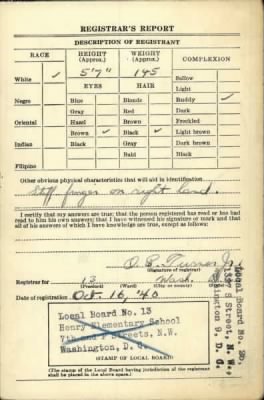 REGISTRAR'S REPORT
DESCRIPTION OF REGISTRANT
RACE HEIGHT (Approx.) WEIGHT (Approx.) COMPLEXION
5'7" 145
White ✓ Sallow
EYES HAIR Light
Negro Blue Blonde Ruddy ✓
Gray Red Dark
Oriental Hazel Brown Freckled
Brown ✓ Black ✓ Light brown
Indian Black Gray Dark brown
Bald Black
Filipino
Other obvious physical characteristics that will aid in identification
Stiff finger on right hand.
I certify that my answers are true; that the person registered has read or has had
read to him his own answers; that I have witnessed his signature or mark and that
all of his answers of which I have knowledge are true, except as follows:
Turner Jr.
(Signature of registrar)
Registrar for 13 Wash.
(Precinct) (Ward) (City or county)
Date of registration Oct. 16, '40
Local Board No. 13
Henry Elementary School
7th and P Streets, N.W.
Washington, D. C.
(STAMP OF LOCAL BOARD)
(The stamp of the Local Board having jurisdiction of the registrant
shall be placed in the above space.)
Local Board No.
Street, N. W.
Washington 9, D. C.